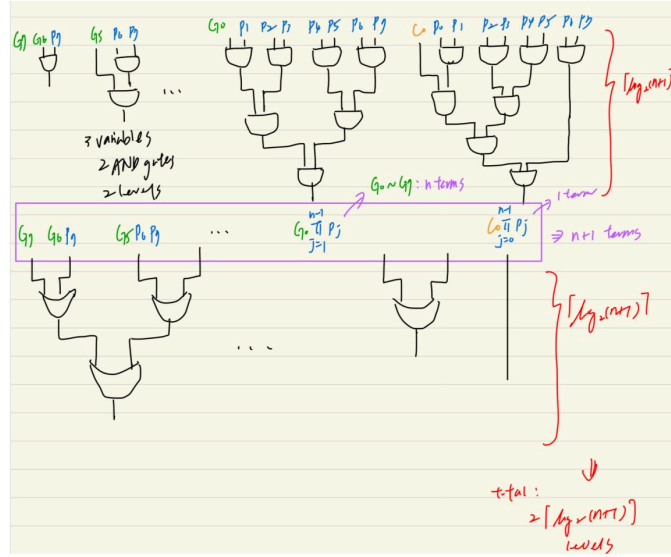 G7 G6 P7 G5 P6 P7 G0 P1 P2 P3 P4 P5 P6 P7 C0 P0 P1 P2 P3 P4 P5 P6 P7
...
⌈log₂(n+1)⌉
3 variables
2 AND gates
2 levels
G0~G7: n terms
1 term
G7 G6P7 G5P6P7 ... G0 n-1 Π j=1 Pj C0 n-1 Π j=0 Pj
⇒ n+1 terms
⌈log₂(n+1)⌉
...
total:
2⌈log₂(n+1)⌉
levels